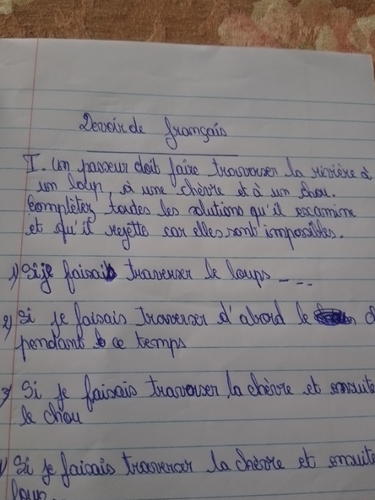 Devoir de français
I. un passeur doit faire traverser la rivière à
un loup, à une chèvre et à un chou.
Compléter toutes les solutions qu'il examine
et qu'il rejette car elles sont impossibles.
1) Si je faisais traverser le loups ---
2) Si je faisais traverser d'abord le
pendant ce temps
3) Si je faisais traverser la chèvre et ensuite
le chou
Si je faisais traverser la chèvre et ensuite
loup